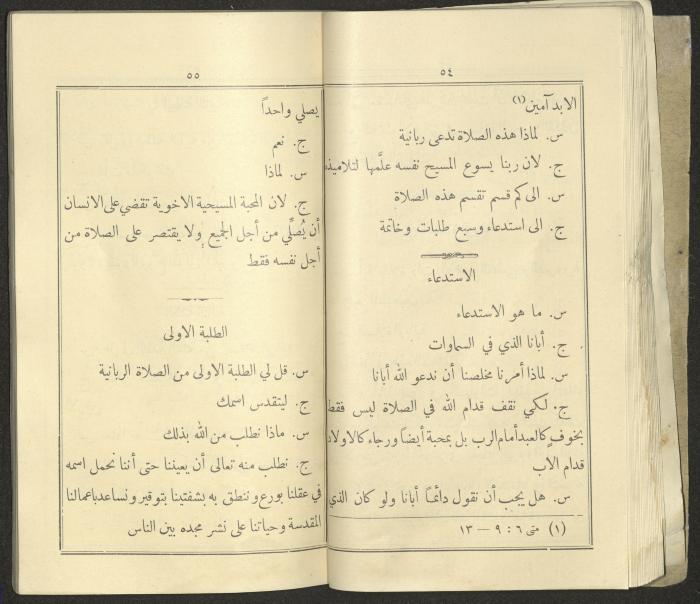 ٥٤
الابد آمين (١)
س. لماذا هذه الصلاة تدعى ربانية
ج. لان ربنا يسوع المسيح نفسه علَّمها لتلاميذه
س. الى كم قسم تقسم هذه الصلاة
ج. الى استدعاء وسبع طلبات وخاتمة
الاستدعاء
س. ما هو الاستدعاء
ج. أبانا الذي في السماوات
س. لماذا أمرنا مخلصنا أن ندعو الله أبانا
ج. لكي نقف قدام الله في الصلاة ليس فقط
بخوف كالعبد أمام الرب بل بمحبة أيضاً ورجاء كالاولاد
قدام الآب
س. هل يجب أن نقول دائمًا أبانا ولو كان الذي
(١) متى ٦ : ٩ — ١٣
٥٥
يصلي واحداً
ج. نعم
س. لماذا
ج. لان المحبة المسيحية الاخوية تقضي على الانسان
أن يُصلّي من أجل الجميع ولا يقتصر على الصلاة من
أجل نفسه فقط
الطلبة الاولى
س. قل لي الطلبة الاولى من الصلاة الربانية
ج. ليتقدس اسمك
س. ماذا نطلب من الله بذلك
ج. نطلب منه تعالى أن يعيننا حتى أننا نحمل اسمه
في عقلنا بورع وننطق به بشفتينا بتوقير ونساعد باعمالنا
المقدسة وحياتنا على نشر مجده بين الناس